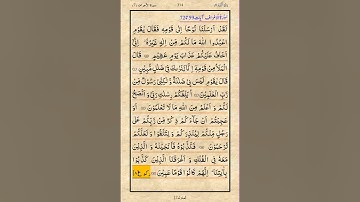 لَقَدْ اَرْسَلْنَا نُوْحًا اِلٰى قَوْمِهٖ فَقَالَ يٰقَوْمِ
اعْبُدُوا اللّٰهَ مَا لَكُمْ مِّنْ اِلٰهٍ غَيْرُهٗ اِنِّيْۤ
اَخَافُ عَلَيْكُمْ عَذَابَ يَوْمٍ عَظِيْمٍ قَالَ
الْمَلَاُ مِنْ قَوْمِهٖۤ اِنَّا لَنَرٰىكَ فِيْ ضَلٰلٍ مُّبِيْنٍ
قَالَ يٰقَوْمِ لَيْسَ بِيْ ضَلٰلَةٌ وَّلٰكِنِّيْ رَسُوْلٌ مِّنْ
رَّبِّ الْعٰلَمِيْنَ اُبَلِّغُكُمْ رِسٰلٰتِ رَبِّيْ وَاَنْصَحُ
لَكُمْ وَاَعْلَمُ مِنَ اللّٰهِ مَا لَا تَعْلَمُوْنَ اَوَ
عَجِبْتُمْ اَنْ جَآءَكُمْ ذِكْرٌ مِّنْ رَّبِّكُمْ عَلٰى
رَجُلٍ مِّنْكُمْ لِيُنْذِرَكُمْ وَلِتَتَّقُوْا وَلَعَلَّكُمْ
تُرْحَمُوْنَ فَكَذَّبُوْهُ فَاَنْجَيْنٰهُ وَالَّذِيْنَ
مَعَهٗ فِي الْفُلْكِ وَاَغْرَقْنَا الَّذِيْنَ كَذَّبُوْا
بِاٰيٰتِنَا اِنَّهُمْ كَانُوْا قَوْمًا عَمِيْنَ رکوع